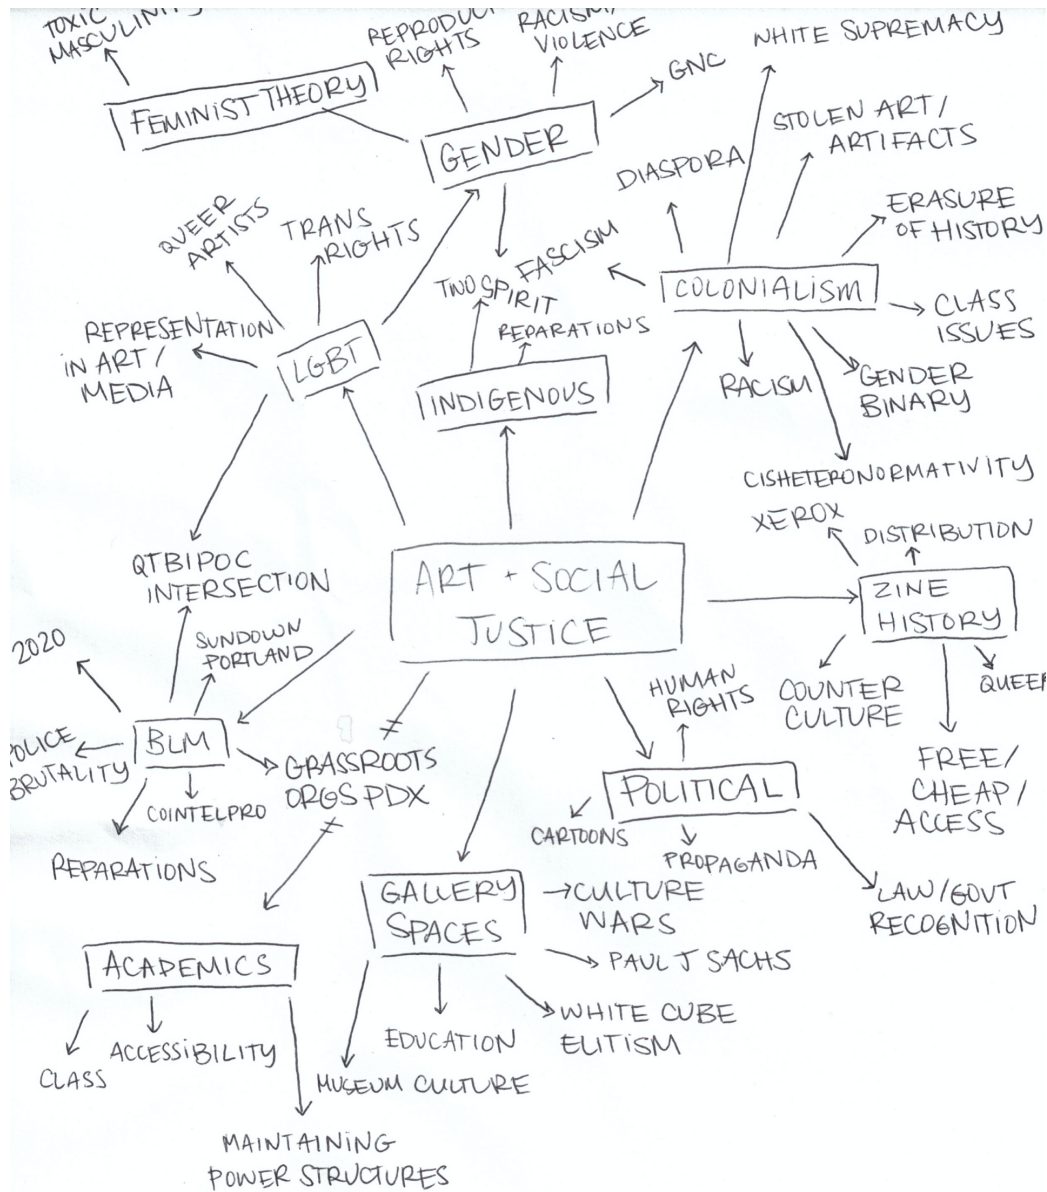 TOXIC
MASCULINITY
REPRODU
RIGHTS
RACISM/
VIOLENCE
GNC
WHITE SUPREMACY
FEMINIST THEORY
GENDER
STOLEN ART/
ARTIFACTS
DIASPORA
QUEER
ARTISTS
TRANS
RIGHTS
TWO SPIRIT
FASCISM
ERASURE
OF HISTORY
COLONIALISM
CLASS
ISSUES
REPRESENTATION
IN ART/
MEDIA
LGBT
REPARATIONS
INDIGENOUS
RACISM
GENDER
BINARY
CISHETERONORMATIVITY
XEROX
DISTRIBUTION
QTBIPOC
INTERSECTION
ART + SOCIAL
JUSTICE
ZINE
HISTORY
2020
SUNDOWN
PORTLAND
HUMAN
RIGHTS
COUNTER
CULTURE
QUEER
BLM
OLICE
BRUTALITY
COINTELPRO
GRASSROOTS
ORGS PDX
POLITICAL
FREE/
CHEAP/
ACCESS
REPARATIONS
CARTOONS
PROPAGANDA
LAW/GOVT
RECOGNITION
GALLERY
SPACES
CULTURE
WARS
PAUL J SACHS
ACADEMICS
WHITE CUBE
ELITISM
EDUCATION
CLASS
ACCESSIBILITY
MUSEUM CULTURE
MAINTAINING
POWER STRUCTURES